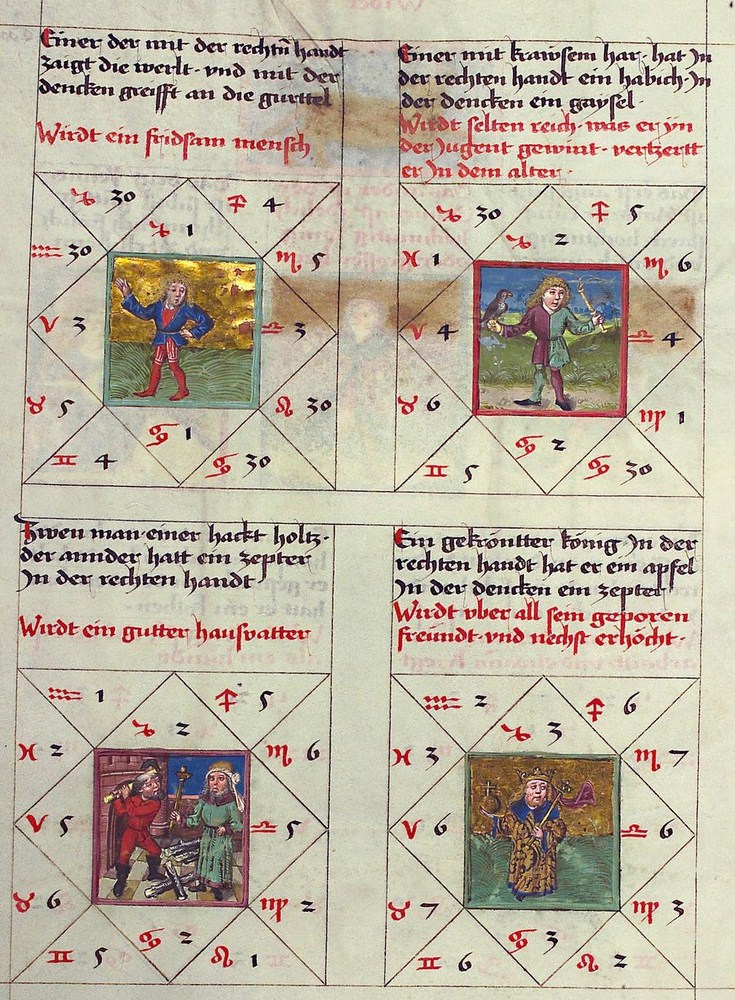 Einer der mit der rechtn̄ handt
zaigt die werlt · vnd mit der
dencken greifft an die gurttel
Wirdt ein fridsam mensch
♑ 30
♐ 4
♒ 30
♑ 1
♏ 5
♈ 3
♎ 3
♉ 5
♌ 30
♋ 1
♊ 4
♋ 30
Einer mit krawsem har · hat Jn
der rechten handt ein habich · Jn
der dencken ein gaysel ·
Wirdt selten reich · was er yn
der Jugent gewint · vertzertt
er Jn dem alter ·
♑ 30
♐ 5
♓ 1
♑ 2
♏ 6
♈ 4
♎ 4
♉ 6
♍ 1
♋ 2
♊ 5
♋ 30
Zwen man · einer hackt holtz ·
der annder hatt ein zepter
Jn der rechten handt
Wirdt ein gutter hausvatter
♒ 1
♐ 5
♑ 2
♓ 2
♏ 6
♈ 5
♎ 5
♉ 6
♍ 2
♋ 2
♊ 5
♌ 1
Ein gekröntter könig · Jn der
rechten handt hat er ein apfel
Jn der dencken ein zepter
Wirdt vber all sein geporen
freündt · vnd nechst erhöcht ·
♒ 2
♐ 6
♑ 3
♓ 3
♏ 7
♈ 6
♎ 6
♉ 7
♍ 3
♋ 3
♊ 6
♌ 2